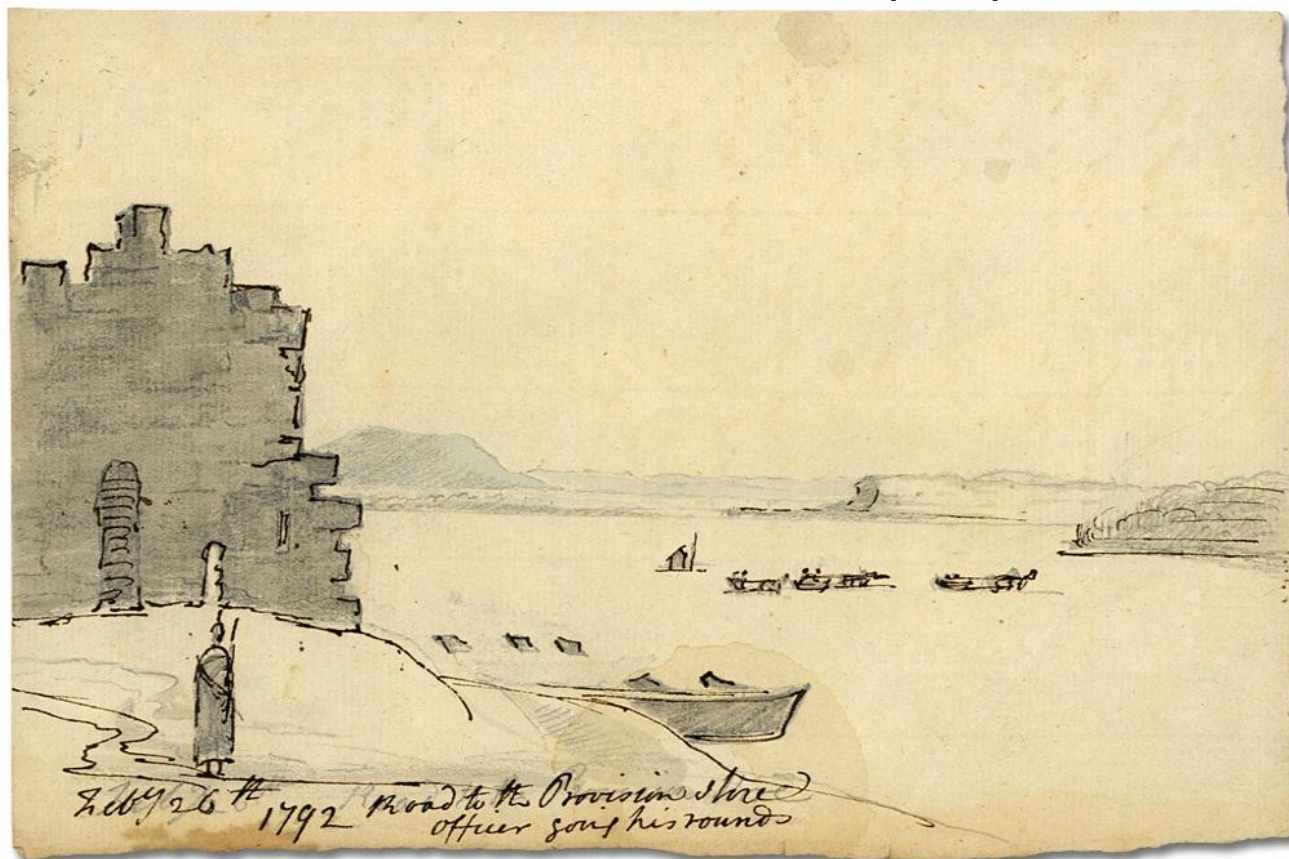 Feby 26th 1792 Road to the Provision Store
officer going his rounds